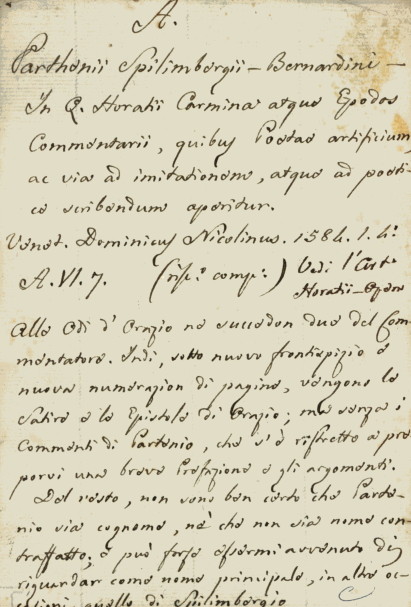 A.
Parthenii Spilimbergii – Bernardini –
In Q. Horatii Carmina atque Epodos
Commentarii, quibus Poetae artificium,
ac via ad imitationem, atque ad poeti-
ce scribendum aperitur.
Venet. Dominicus Nicolinus. 1584. 1. 4.º
A. VI. 7. Vedi l'Art.
Horatii – Opera
Alle Odi d'Orazio ne succedon due del Com-
mentatore. Indi, sotto nuovo frontispizio e
nuova numerazion di pagine, vengono le
Satire e le Epistole di Orazio; ma senza i
Commenti di Partenio, che s'è ristretto a pre
porvi una breve Prefazione e gli argomenti.
Del resto, non sono ben certo che Parte-
nio sia cognome, nè che non sia nome con-
traffatto; e può forse essermi avvenuto di
riguardar come nome principale, in altre oc-
casioni, quello di Spilimbergio